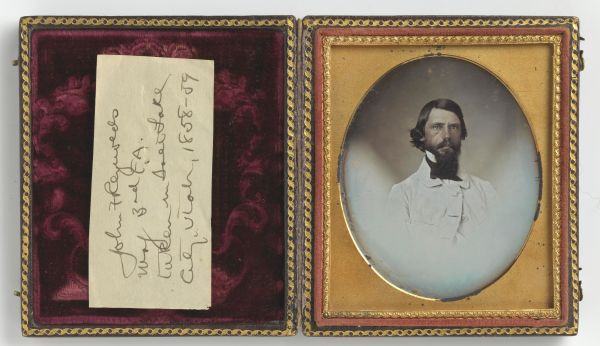 John F Reynolds
Maj Bvt U.S.A.
taken in Salt Lake
City, Utah, 1858-59